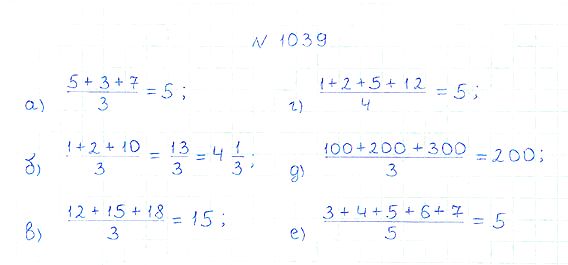 N 1039
а) (5 + 3 + 7)/3 = 5 ;
б) (1 + 2 + 10)/3 = 13/3 = 4 1/3 ;
в) (12 + 15 + 18)/3 = 15 ;
г) (1 + 2 + 5 + 12)/4 = 5 ;
д) (100 + 200 + 300)/3 = 200 ;
е) (3 + 4 + 5 + 6 + 7)/5 = 5